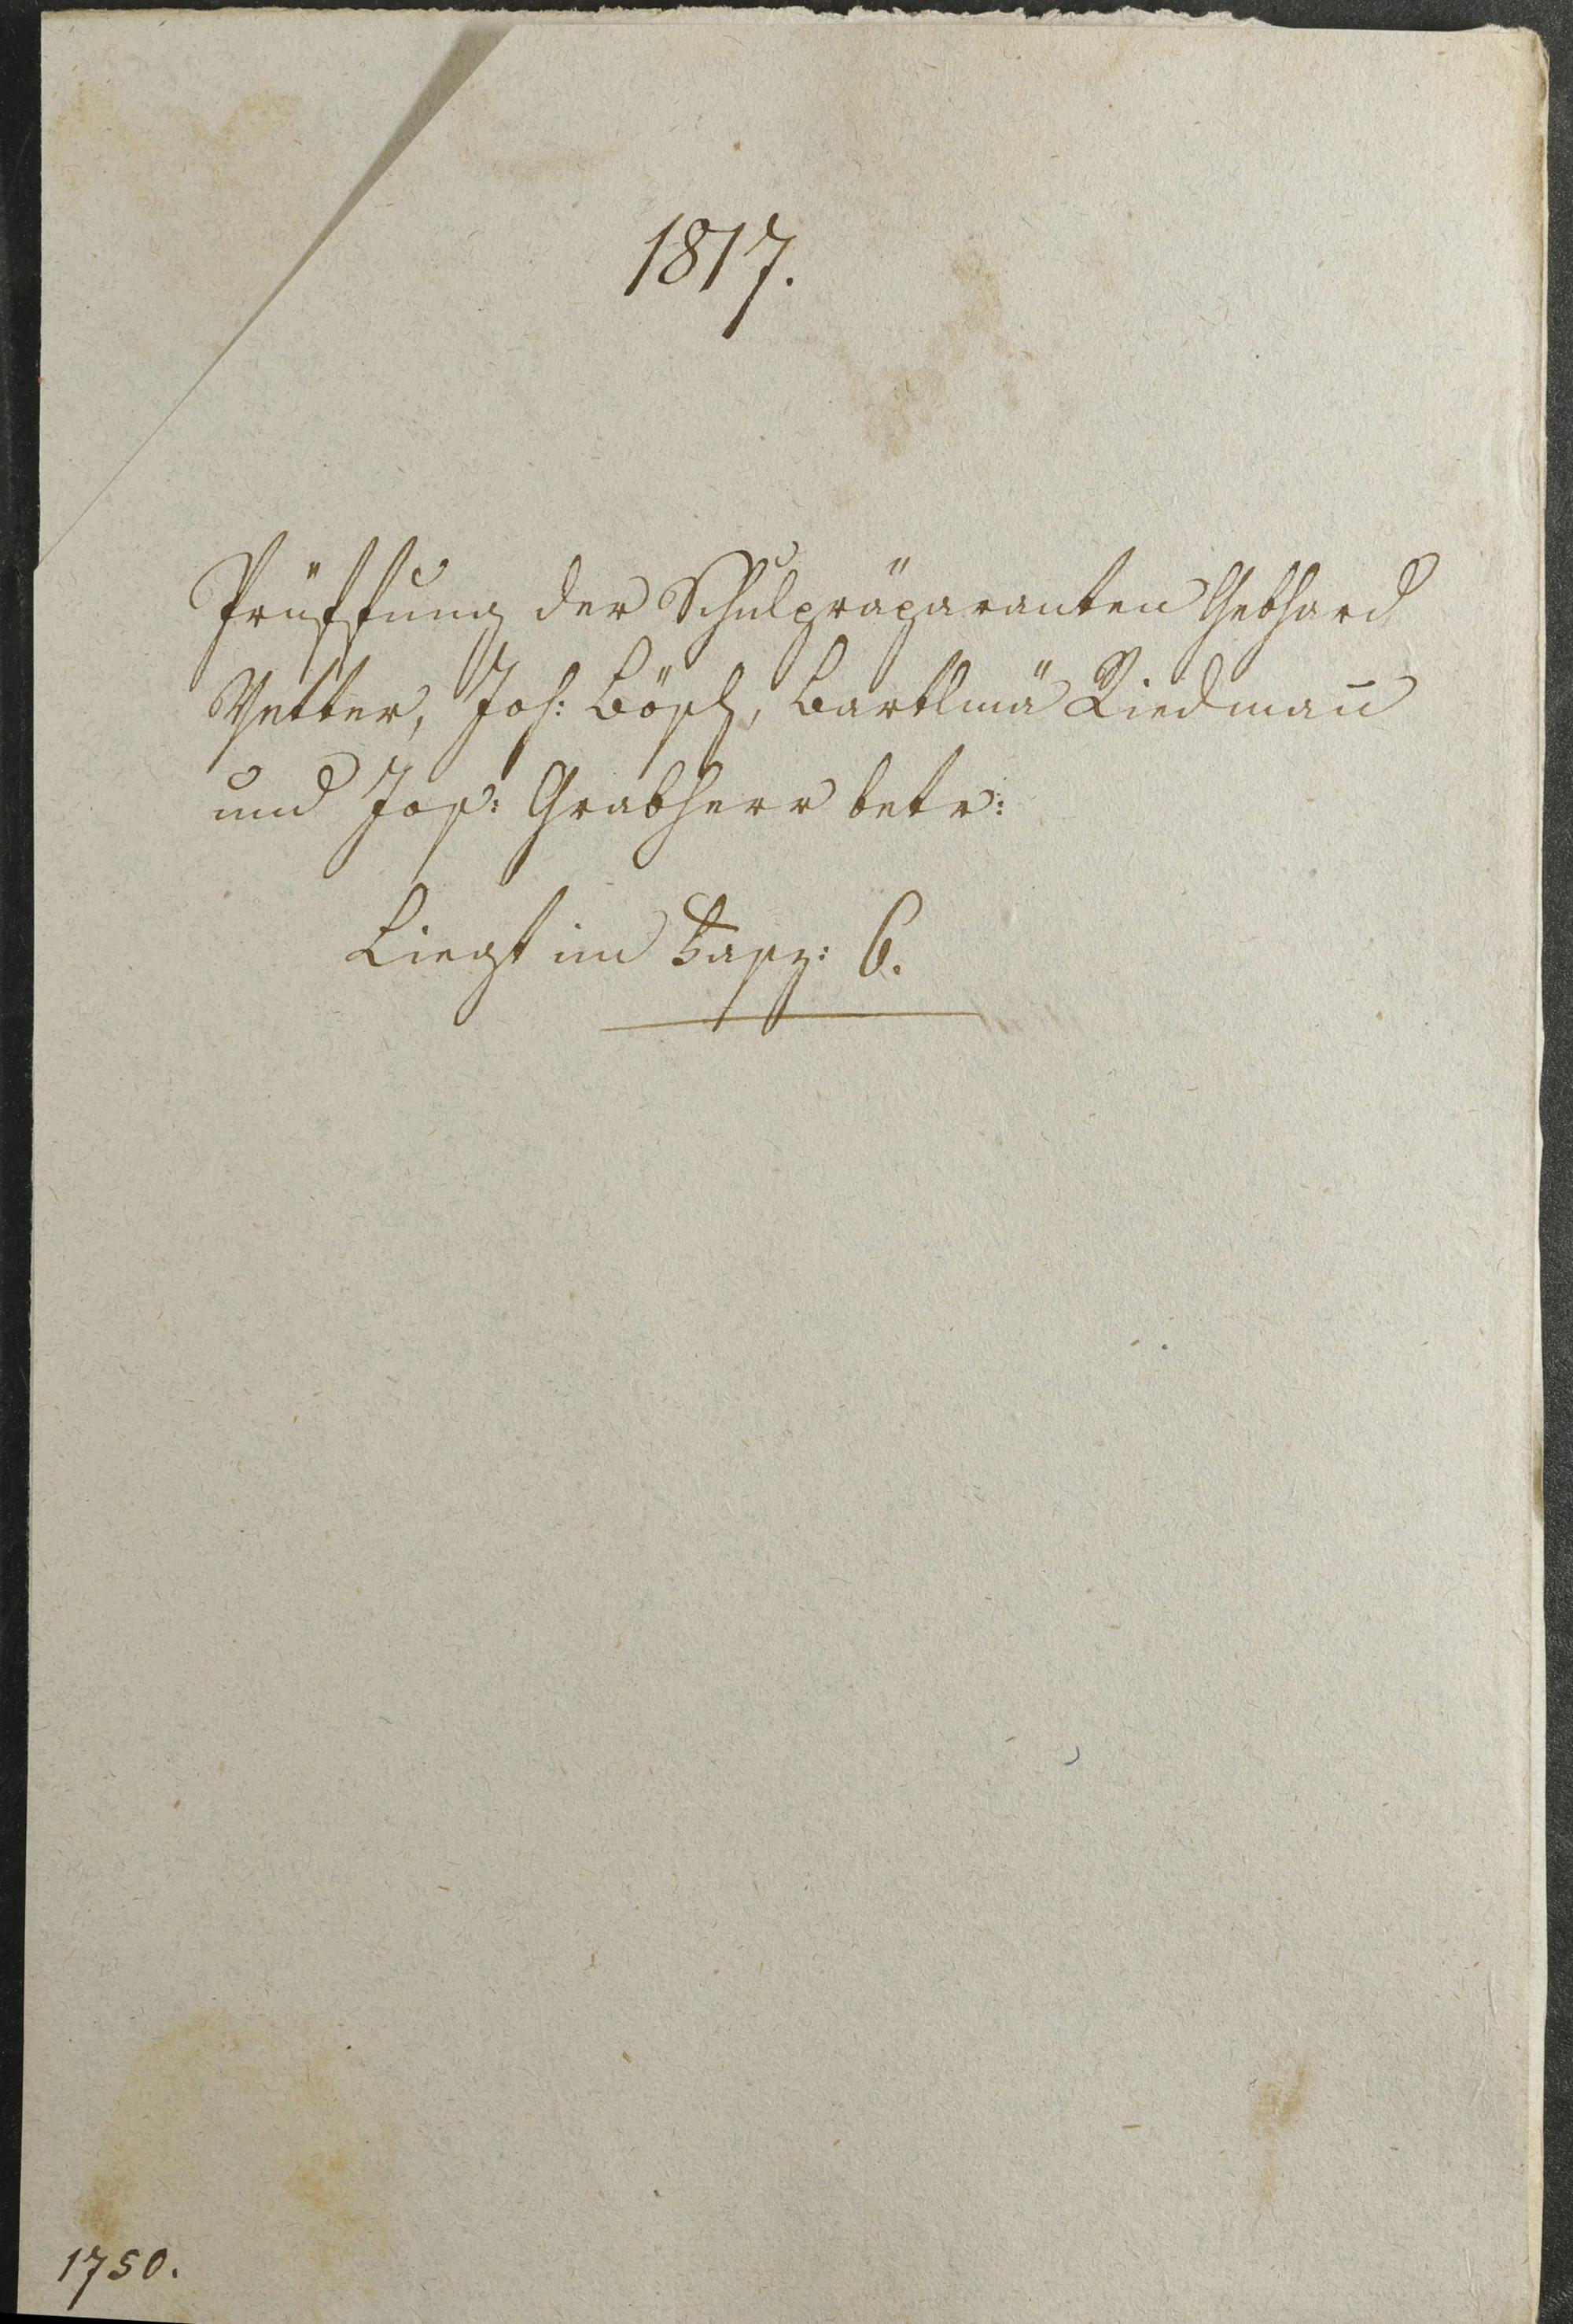 1817.
Prüffung der Schulpräparanten Gebhard
Vetter, Joh: Bösch, Bartlmä Riedman̄
und Jos: Grabherr betr:
Liegt im Fasz: 6.
1750.